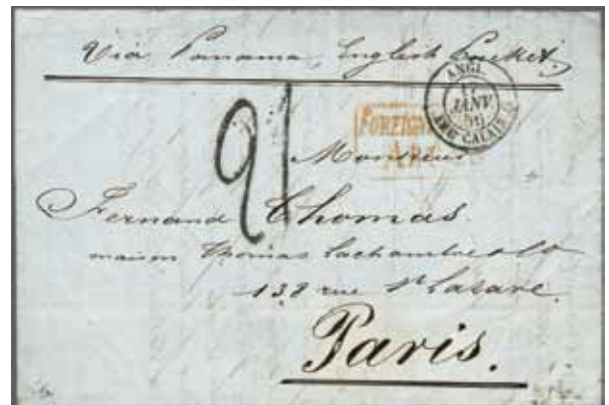 Via Panama, English Packet.
ANGL.
17
JANV.
56
AMB. CALAIS
FOREIGN
ART
21
Monsieur
Fernand Thomas.
maison Thomas Lachambre & Co
138 rue St Lazare.
Paris.